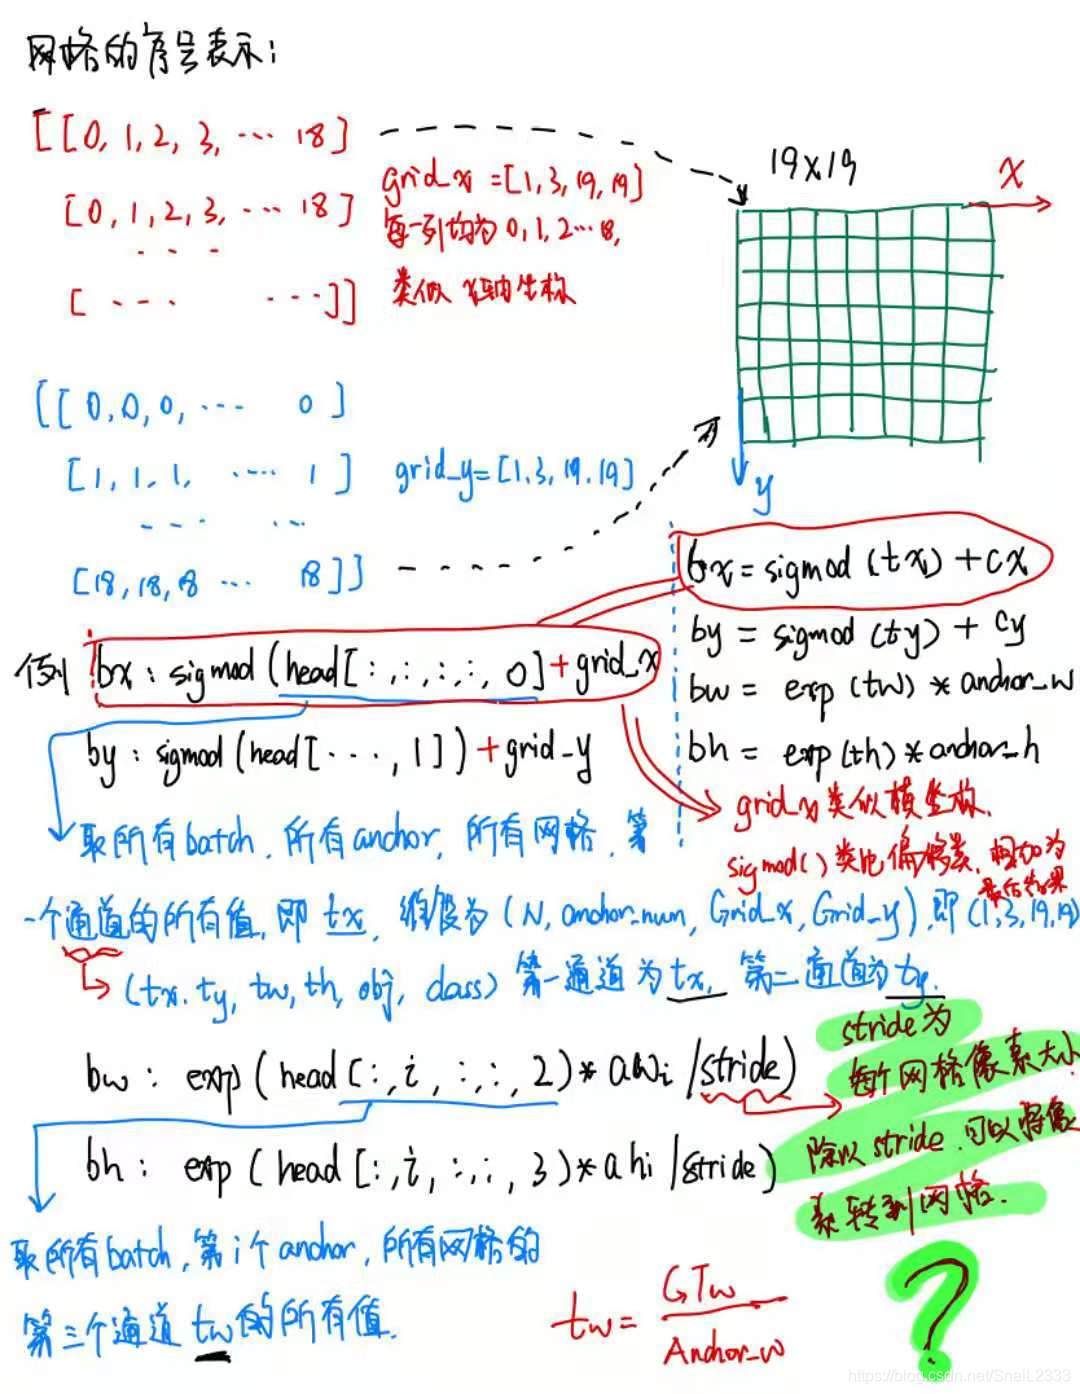 网格的序号表示:
[[0, 1, 2, 3, ... 18]
[0, 1, 2, 3, ... 18]
. . .
[ ... ...]]
grid_x = [1, 3, 19, 19]
每一列均为 0, 1, 2 ... 18,
类似 x轴坐标
19X19
X
[[ 0, 0, 0, ... 0 ]
[1, 1, 1, ... 1 ]
... ...
[18, 18, 18 ... 18]]
grid_y = [1, 3, 19, 19]
y
bx = sigmod (tx) + cx
by = sigmod (ty) + cy
bw = exp (tw) * anchor_w
bh = exp (th) * anchor_h
例 bx : sigmod (head [:,:,:,:, 0] + grid_x
by : sigmod (head [ ... , 1] ) + grid_y
grid_x 类似横坐标,
sigmod( ) 类比偏移类, 相加为
最后结果
取所有batch, 所有anchor, 所有网格, 第
一个通道的所有值, 即 tx, 维度为 (N, anchor_num, Grid_x, Grid_y), 即 (1, 3, 19, 19)
(tx, ty, tw, th, obj, class) 第一通道为tx, 第二通道为ty.
bw : exp (head [:, i, :,:, 2) * awi /stride)
bh : exp (head [:, i, :,:, 3) * ahi /stride)
stride为
每个网格像素大小
除以stride, 可以将像
素转到网格.
?
取所有batch, 第i个anchor, 所有网格的
第三个通道 tw的所有值.
tw = GTw / Anchor_w
https://blog.csdn.net/SnaiL2333